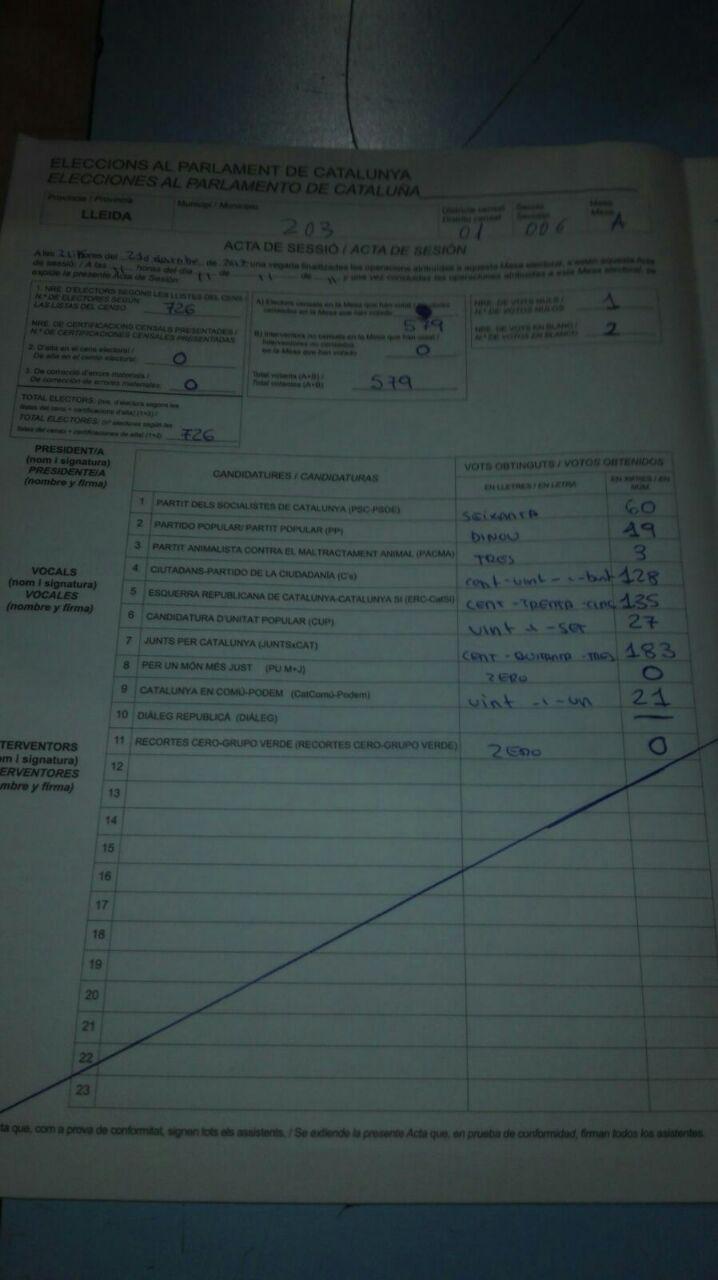 ELECCIONS AL PARLAMENT DE CATALUNYA
ELECCIONES AL PARLAMENTO DE CATALUÑA
Província / Provincia
LLEIDA
Municipi / Municipio
203
Districte censal
Distrito censal
01
Secció
Sección
006
Mesa
Mesa
A
ACTA DE SESSIÓ / ACTA DE SESIÓN
A les 21 hores del 21 de desembre de 2017, una vegada finalitzades les operacions atribuïdes a aquesta Mesa electoral, s'estén aquesta Acta
de sessió. / A las " horas del día " de " de " y una vez concluidas las operaciones atribuidas a esta Mesa electoral, se
expide la presente Acta de Sesión.
1. NRE. D'ELECTORS SEGONS LES LLISTES DEL CENS
N.º DE ELECTORES SEGÚN
LAS LISTAS DEL CENSO
726
NRE. DE CERTIFICACIONS CENSALS PRESENTADES /
N.º DE CERTIFICACIONES CENSALES PRESENTADAS
2. D'alta en el cens electoral /
De alta en el censo electoral:
0
3. De correcció d'errors materials /
De corrección de errores materiales:
0
TOTAL ELECTORS: (nre. d'electors segons les
llistes del cens + certificacions d'alta) (1+2) /
TOTAL ELECTORES: (nº electores según las
listas del censo + certificaciones de alta) (1+2)
726
A) Electors censats en la Mesa que han votat / Electores
censados en la Mesa que han votado
579
B) Interventors no censats en la Mesa que han votat /
Interventores no censados
en la Mesa que han votado
0
Total votants (A+B) /
Total votantes (A+B)
579
NRE. DE VOTS NULS /
N.º DE VOTOS NULOS
1
NRE. DE VOTS EN BLANC /
N.º DE VOTOS EN BLANCO
2
PRESIDENT/A
(nom i signatura)
PRESIDENTE/A
(nombre y firma)
VOCALS
(nom i signatura)
VOCALES
(nombre y firma)
TERVENTORS
om i signatura)
ERVENTORES
mbre y firma)
CANDIDATURES / CANDIDATURAS
VOTS OBTINGUTS / VOTOS OBTENIDOS
EN LLETRES / EN LETRA
EN XIFRES / EN NÚM.
1 PARTIT DELS SOCIALISTES DE CATALUNYA (PSC-PSOE) SEIXANTA 60
2 PARTIDO POPULAR/ PARTIT POPULAR (PP) DINOU 19
3 PARTIT ANIMALISTA CONTRA EL MALTRACTAMENT ANIMAL (PACMA) TRES 3
4 CIUTADANS-PARTIDO DE LA CIUDADANÍA (C's) cent-vint-i-buit 128
5 ESQUERRA REPUBLICANA DE CATALUNYA-CATALUNYA SÍ (ERC-CatSí) CENT-TRENTA-CINC 135
6 CANDIDATURA D'UNITAT POPULAR (CUP) vint-i-set 27
7 JUNTS PER CATALUNYA (JUNTSxCAT) CENT-VUITANTA-TRES 183
8 PER UN MÓN MÉS JUST (PU M+J) ZERO 0
9 CATALUNYA EN COMÚ-PODEM (CatComú-Podem) vint-i-un 21
10 DIÀLEG REPUBLICÀ (DIÀLEG) —
11 RECORTES CERO-GRUPO VERDE (RECORTES CERO-GRUPO VERDE) ZERO 0
12
13
14
15
16
17
18
19
20
21
22
23
ta que, com a prova de conformitat, signen tots els assistents. / Se extiende la presente Acta que, en prueba de conformidad, firman todos los asistentes.